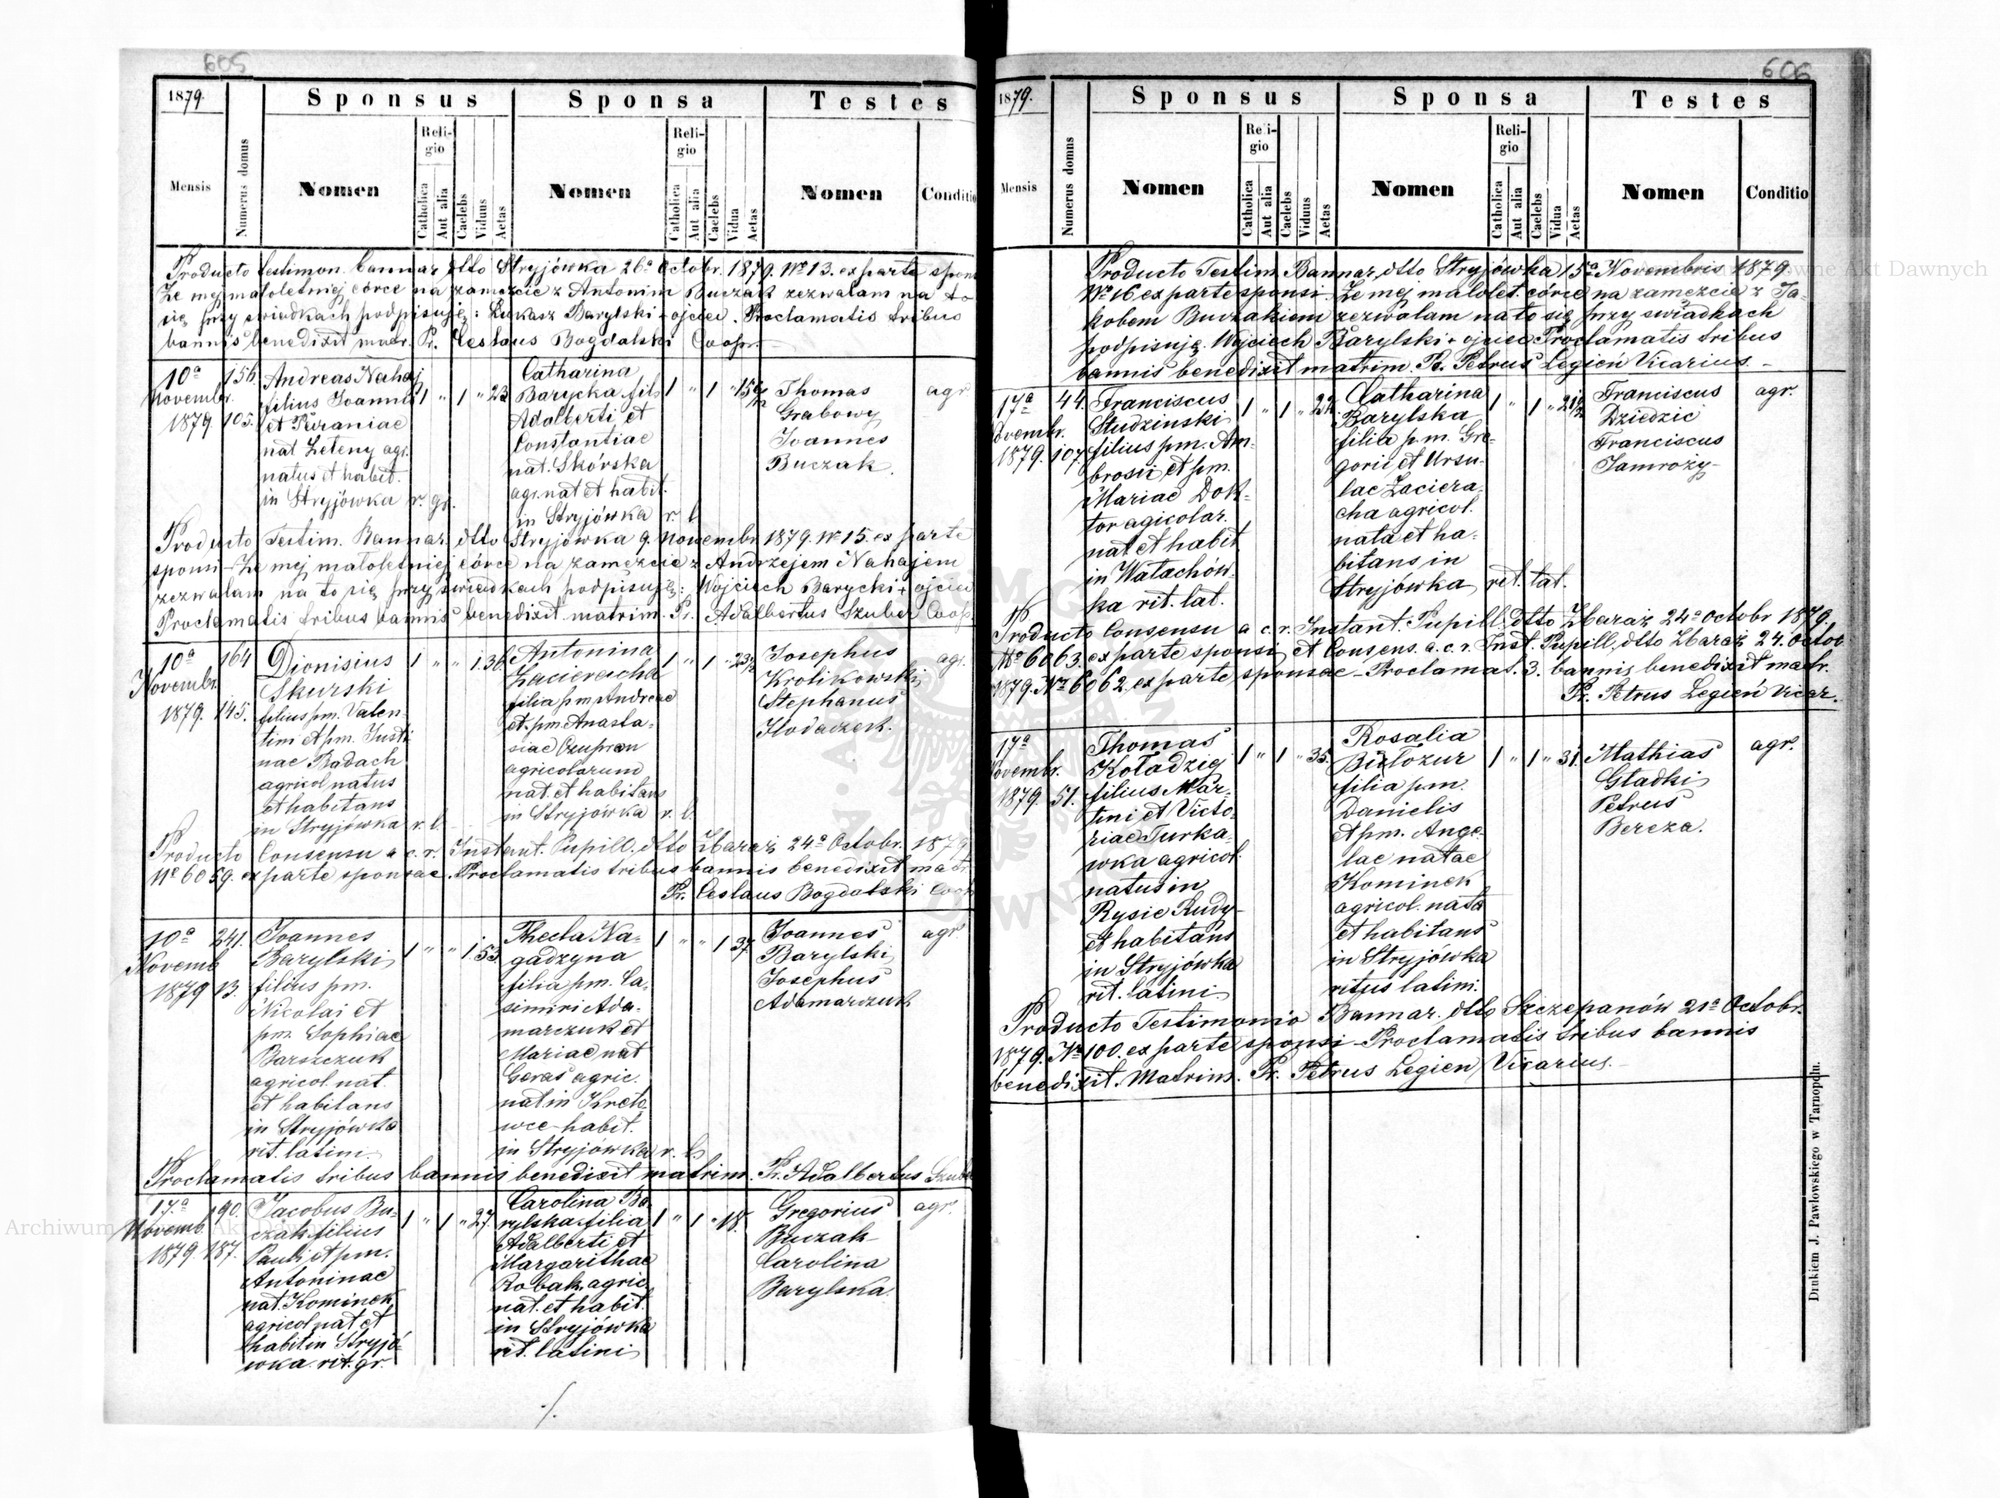 605
1879.
Sponsus
Sponsa
Testes
Mensis
Numerus domus
Nomen
Religio
Catholica
Aut alia
Caelebs
Viduus
Aetas
Nomen
Religio
Catholica
Aut alia
Caelebs
Vidua
Aetas
Nomen
Conditio
Producto testimon. bannar. dtto Stryjówka 26a Octobr. 1879. No 13. ex parte sponsi
Że mej małoletniej córce na zamęzcie z Antonim Buczak zezwalam na to
się przy swiadkach podpisuję: Łukasz Barylski + ojciec. Proclamatis tribus
bannis benedixit matr. Pr. Ceslaus Bogdalski Coopr.
10a
Novembr.
1879
156.
105.
Andreas Nahaj
filius Joannis
et Paraniae
nat Zeleny agr.
natus et habit.
in Stryjówka r. gr.
1 " 1 " 23
Catharina
Barycka fil.
Adalberti et
Constantiae
nat. Skórska
agr. nat et habit.
in Stryjówka r. l.
1 " 1 " 15
Thomas
Grabowy
Joannes
Buczak
agr.
Producto Testim. Bannar. dtto Stryjówka 9. Novembr. 1879. No 15. ex parte
sponsi – Że mej małoletniej córce na zamęzcie z Andrzejem Nahajem
zezwalam na to się przy swiadkach podpisuję: Wojciech Barycki + ojciec
Proclamatis tribus bannis benedixit matrim. Pr. Adalbertus Szuber Coop.
10a
Novembr.
1879.
164
145.
Dionisius
Skurski
filius pm. Valen-
tini et pm. Justi
nae Badach
agricol natus
et habitans
in Stryjówka r. l.
1 " " 1. 36.
Antonina
Zacieracha
filia pm Andreae
et pm. Anasta-
siae Czupran
agricolarum
nat. et habitans
in Stryjówka r. l.
1 " 1 " 23
Josephus
Krolikowski
Stephanus
Hodaczek.
agr.
Producto Consensu a c. r. Instant. Pupill. dtto Zbaraż 24a Octobr. 1879
No 6059. ex parte sponsae. Proclamatis tribus bannis benedixit matr.
Pr. Ceslaus Bogdalski Coop
10a
Novemb
1879
241.
13.
Joannes
Barylski
filius pm.
Nicolai et
pm. Sophiae
Barszczuk
agricol. nat.
et habitans
in Stryjówka
rit. latini
1 " " 1. 53
Thecla Na-
gadzyna
filia pm. Ca-
simiri Ada-
marczuk et
Mariae nat
Geras agric.
nat in Krete
wce habit.
in Stryjówka r. l.
1 " " 1 37.
Joannes
Barylski
Josephus
Adamarczuk
agr.
Proclamatis tribus bannis benedixit matrim. Pr. Adalbertus Szuber
17a
Novemb.
1879
190.
187.
Jacobus Bu-
czak filius
Pauli et pm.
Antoninae
nat. Kominek
agricol nat et
habit in Stryjó-
wka. rit. gr.
1 " 1 " 27.
Carolina Ba-
rylska filia
Adalberti et
Margarithae
Robak. agric.
nat. et habit.
in Stryjówka
rit. latini
1 " 1 " 18.
Gregorius
Buczak
Carolina
Barylska.
agr.
606
1879.
Sponsus
Sponsa
Testes
Mensis
Numerus domus
Nomen
Religio
Catholica
Aut alia
Caelebs
Viduus
Aetas
Nomen
Religio
Catholica
Aut alia
Caelebs
Vidua
Aetas
Nomen
Conditio
Producto Testim. Bannar. dtto Stryjówka 15a Novembris 1879.
No 16 ex parte sponsi. Że mej malolet. córce na zamęzcie z Ja-
kobem Buczakiem zezwalam na to się przy swiadkach
podpisuję. Wojciech Barylski + ojciec Proclamatis tribus
bannis benedixit matrim. Pr. Petrus Legień Vicarius. –
17a
Novembr.
1879.
44.
107
Franciscus
Studzinski
filius pm. Am-
brosii et pm.
Mariae Dok-
tor agicolar.
nat et habit
in Watachów-
ka rit. lat.
1 " 1 " 22.
Catharina
Barylska
filia p.m. Gre-
gorii et Ursu-
lae Zaciera-
cha agricol.
nata et ha-
bitans in
Stryjówka rit. lat.
1 " 1 " 21
Franciscus
Dziedzic
Franciscus
Jamroży
agr.
Producto Consensu a c. r. Instant. Pupill. dtto Zbaraż 24a Octobr 1879.
No 6063. ex parte sponsi, et Consens. a. c. r. Inst. Pupill. dtto Zbaraż 24. Octob
1879. No 6062. ex parte sponsae – Proclamat. 3. bannis benedixit matr.
Pr. Petrus Legień Vicar.
17a
Novembr.
1879.
51.
Thomas
Koładzig
filius Mar-
tini et Victo-
riae Turka-
wka agricol.
natus in
Rysie Rudy
et habitans
in Stryjówka
rit. latini
1 " 1 " 35.
Rosalia
Białozur
filia p.m.
Danielis
et pm. Ange-
lae natae
Kominek
agricol. nata
et habitans
in Stryjówka
ritus latini.
1 " 1 " 31.
Mathias
Gładki
Petrus
Bereza.
agr.
Producto Testimonio Bannar. dtto Szczepanów 21a Octobr.
1879. No 100. ex parte sponsi – Proclamatis tribus bannis
benedixit. Matrim. Pr. Petrus Legien Vicarius. –
Drukiem J. Pawłowskiego w Tarnopolu.